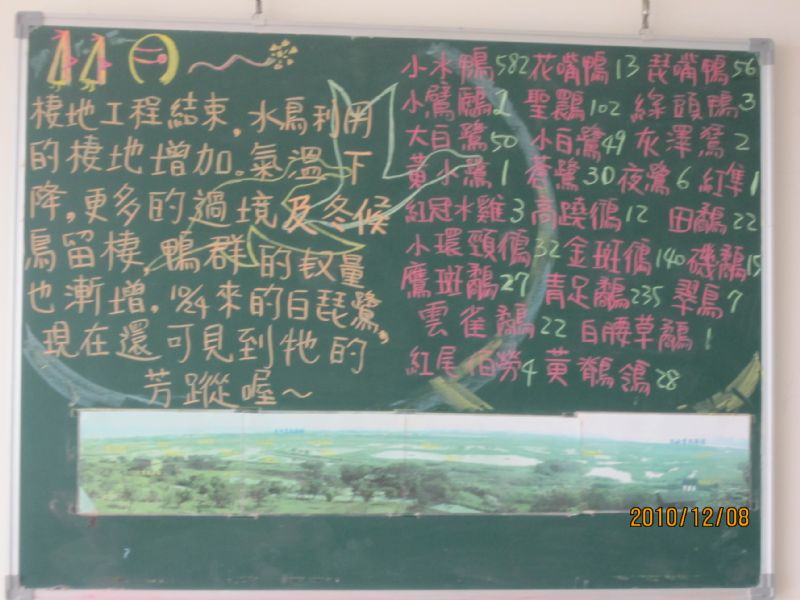 11月
棲地工程結束,水鳥利用
的棲地增加。氣溫下
降,更多的過境及冬候
鳥留棲,鴨群的數量
也漸增,10/24來的白琵鷺,
現在還可見到牠的
芳蹤喔~
小水鴨582 花嘴鴨13 琵嘴鴨56
小鷿鷉2 聖䴉102 綠頭鴨3
大白鷺50 小白鷺49 灰澤鵟2
黃小鷺1 蒼鷺30 夜鷺6 紅隼1
紅冠水雞3 高蹺鴴12 田鷸22
小環頸鴴32 金斑鴴140 磯鷸15
鷹斑鷸27 青足鷸235 翠鳥7
雲雀鷸22 白腰草鷸1
紅尾伯勞4 黃鶺鴒28
2010/12/08